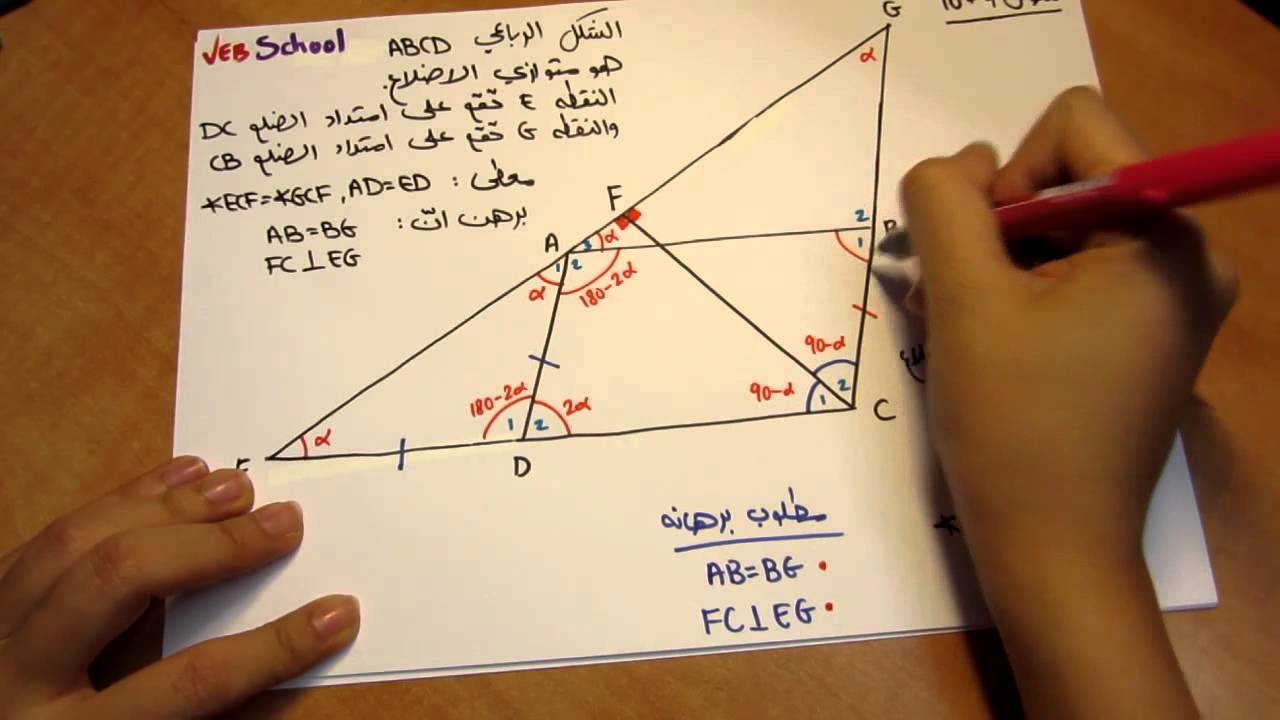 VEB School
الشكل الرباعي ABCD
هو متوازي الاضلاع.
النقطه E تقع على امتداد الضلع DC
والنقطه G تقع على امتداد الضلع CB
معطى : ∢ECF=∢GCF, AD=ED
برهن انّ : AB=BG
FC⊥EG
G
α
F
2
A
3
α
1
1
2
α
180-2α
90-α
180-2α
2α
90-α
2
α
1
2
1
C
D
مطلوب برهانه
AB=BG •
FC⊥EG •